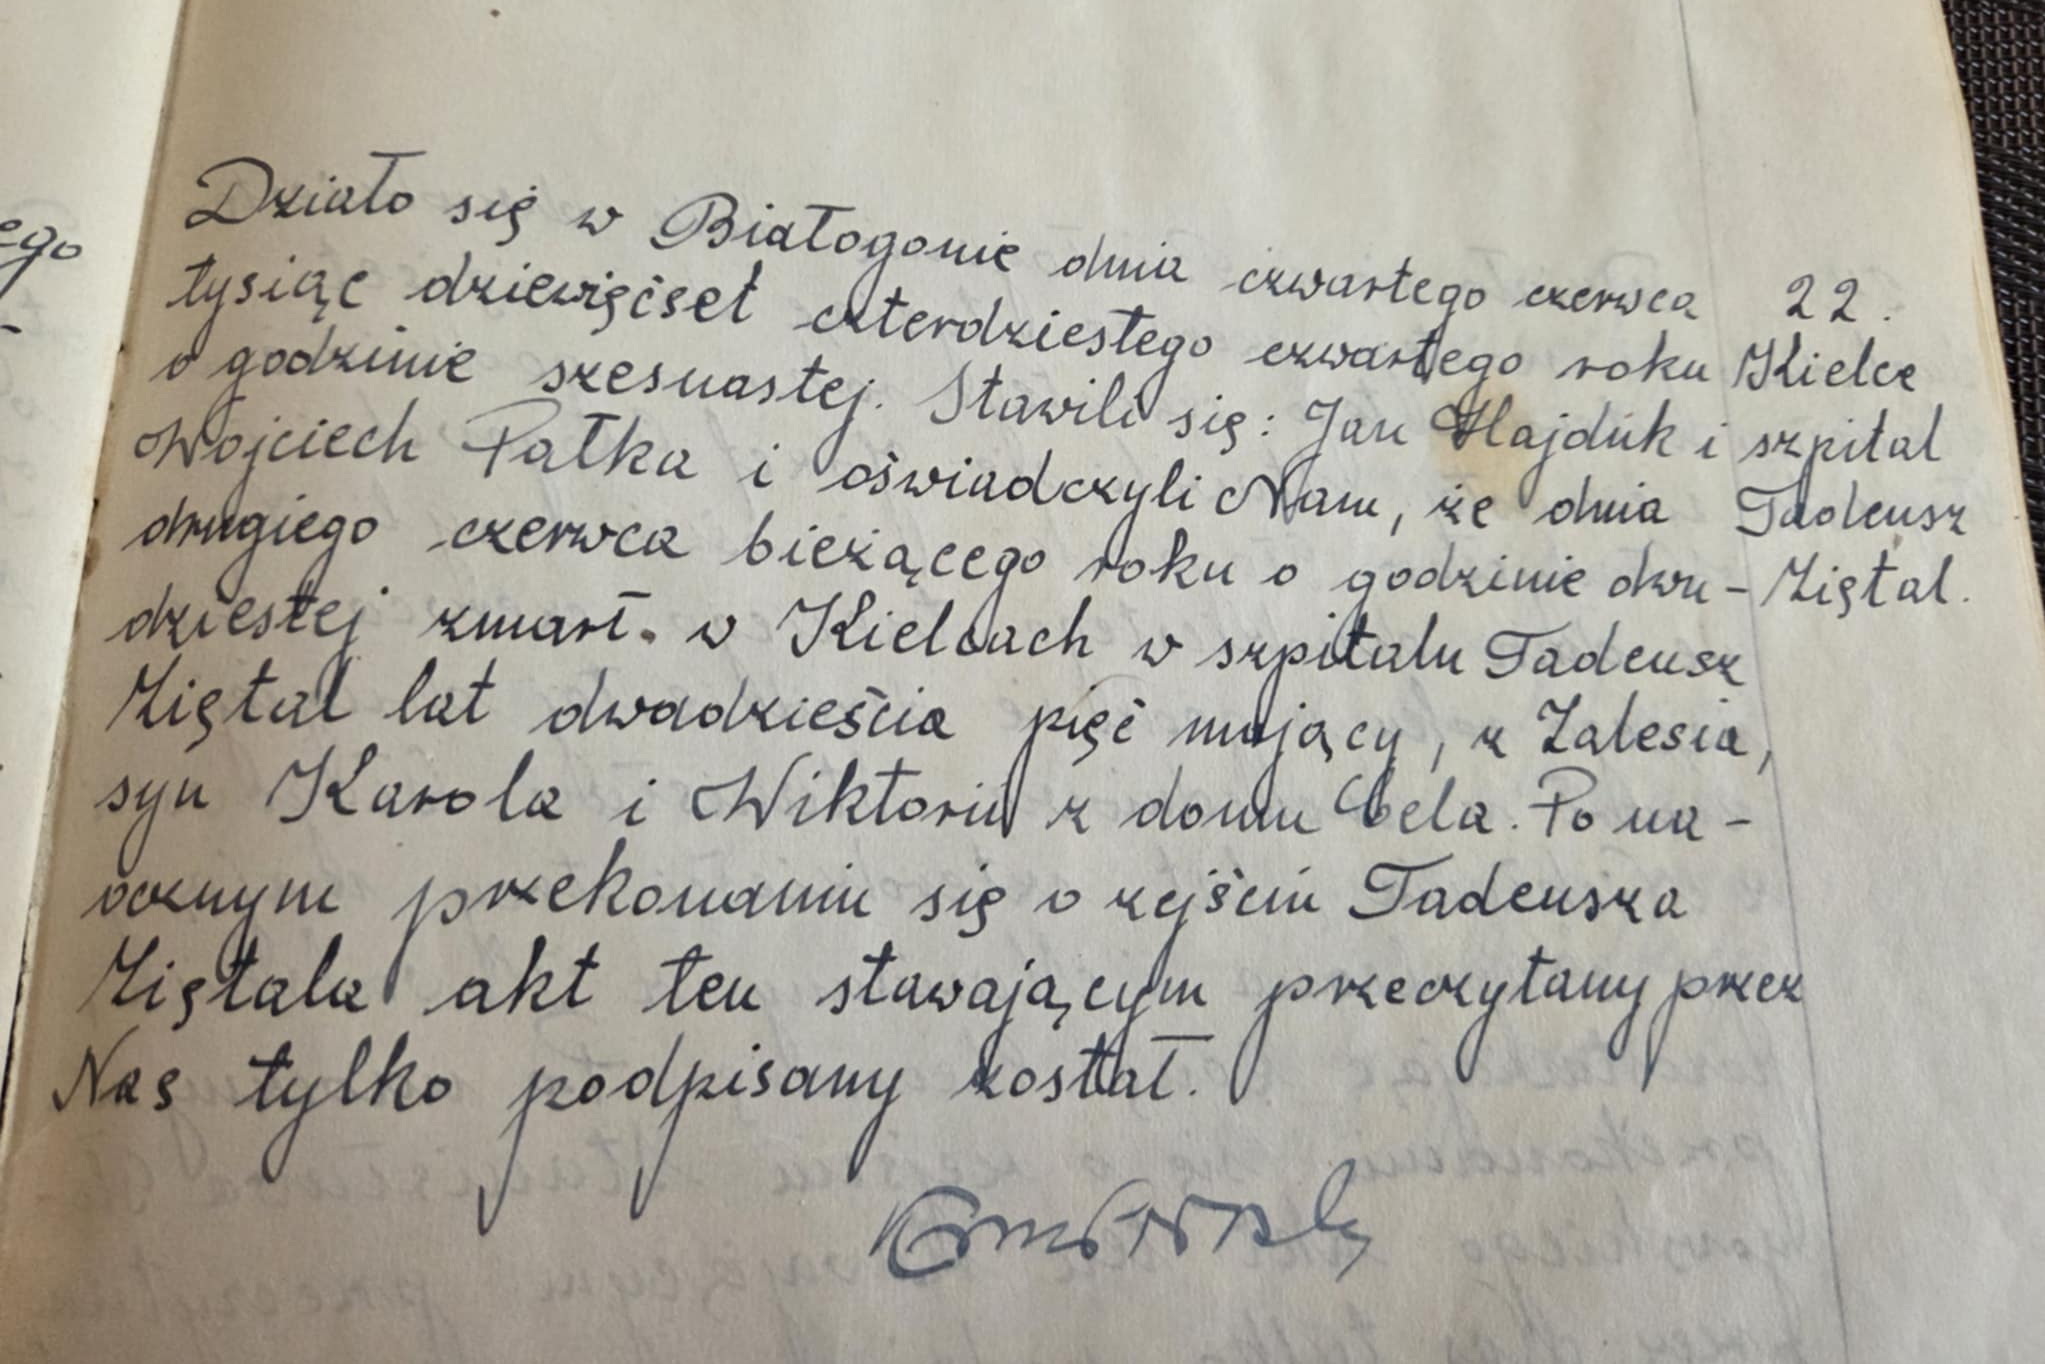 Działo się w Białogonie dnia czwartego czerwca
tysiąc dziewięćset czterdziestego czwartego roku
o godzinie szesnastej. Stawili się: Jan Hajduk i
Wojciech Pałka i oświadczyli Nam, że dnia
drugiego czerwca bieżącego roku o godzinie dwu-
dziestej zmarł. w Kielcach w szpitalu Tadeusz
Ziętal lat dwadzieścia pięć mający, z Zalesia,
syn Karola i Wiktorii z domu Cela. Po na-
ocznym przekonaniu się o zejściu Tadeusza
Ziętala akt ten stawającym przeczytany przez
Nas tylko podpisany został.
22.
Kielce
szpital
Tadeusz
Ziętal.
ego